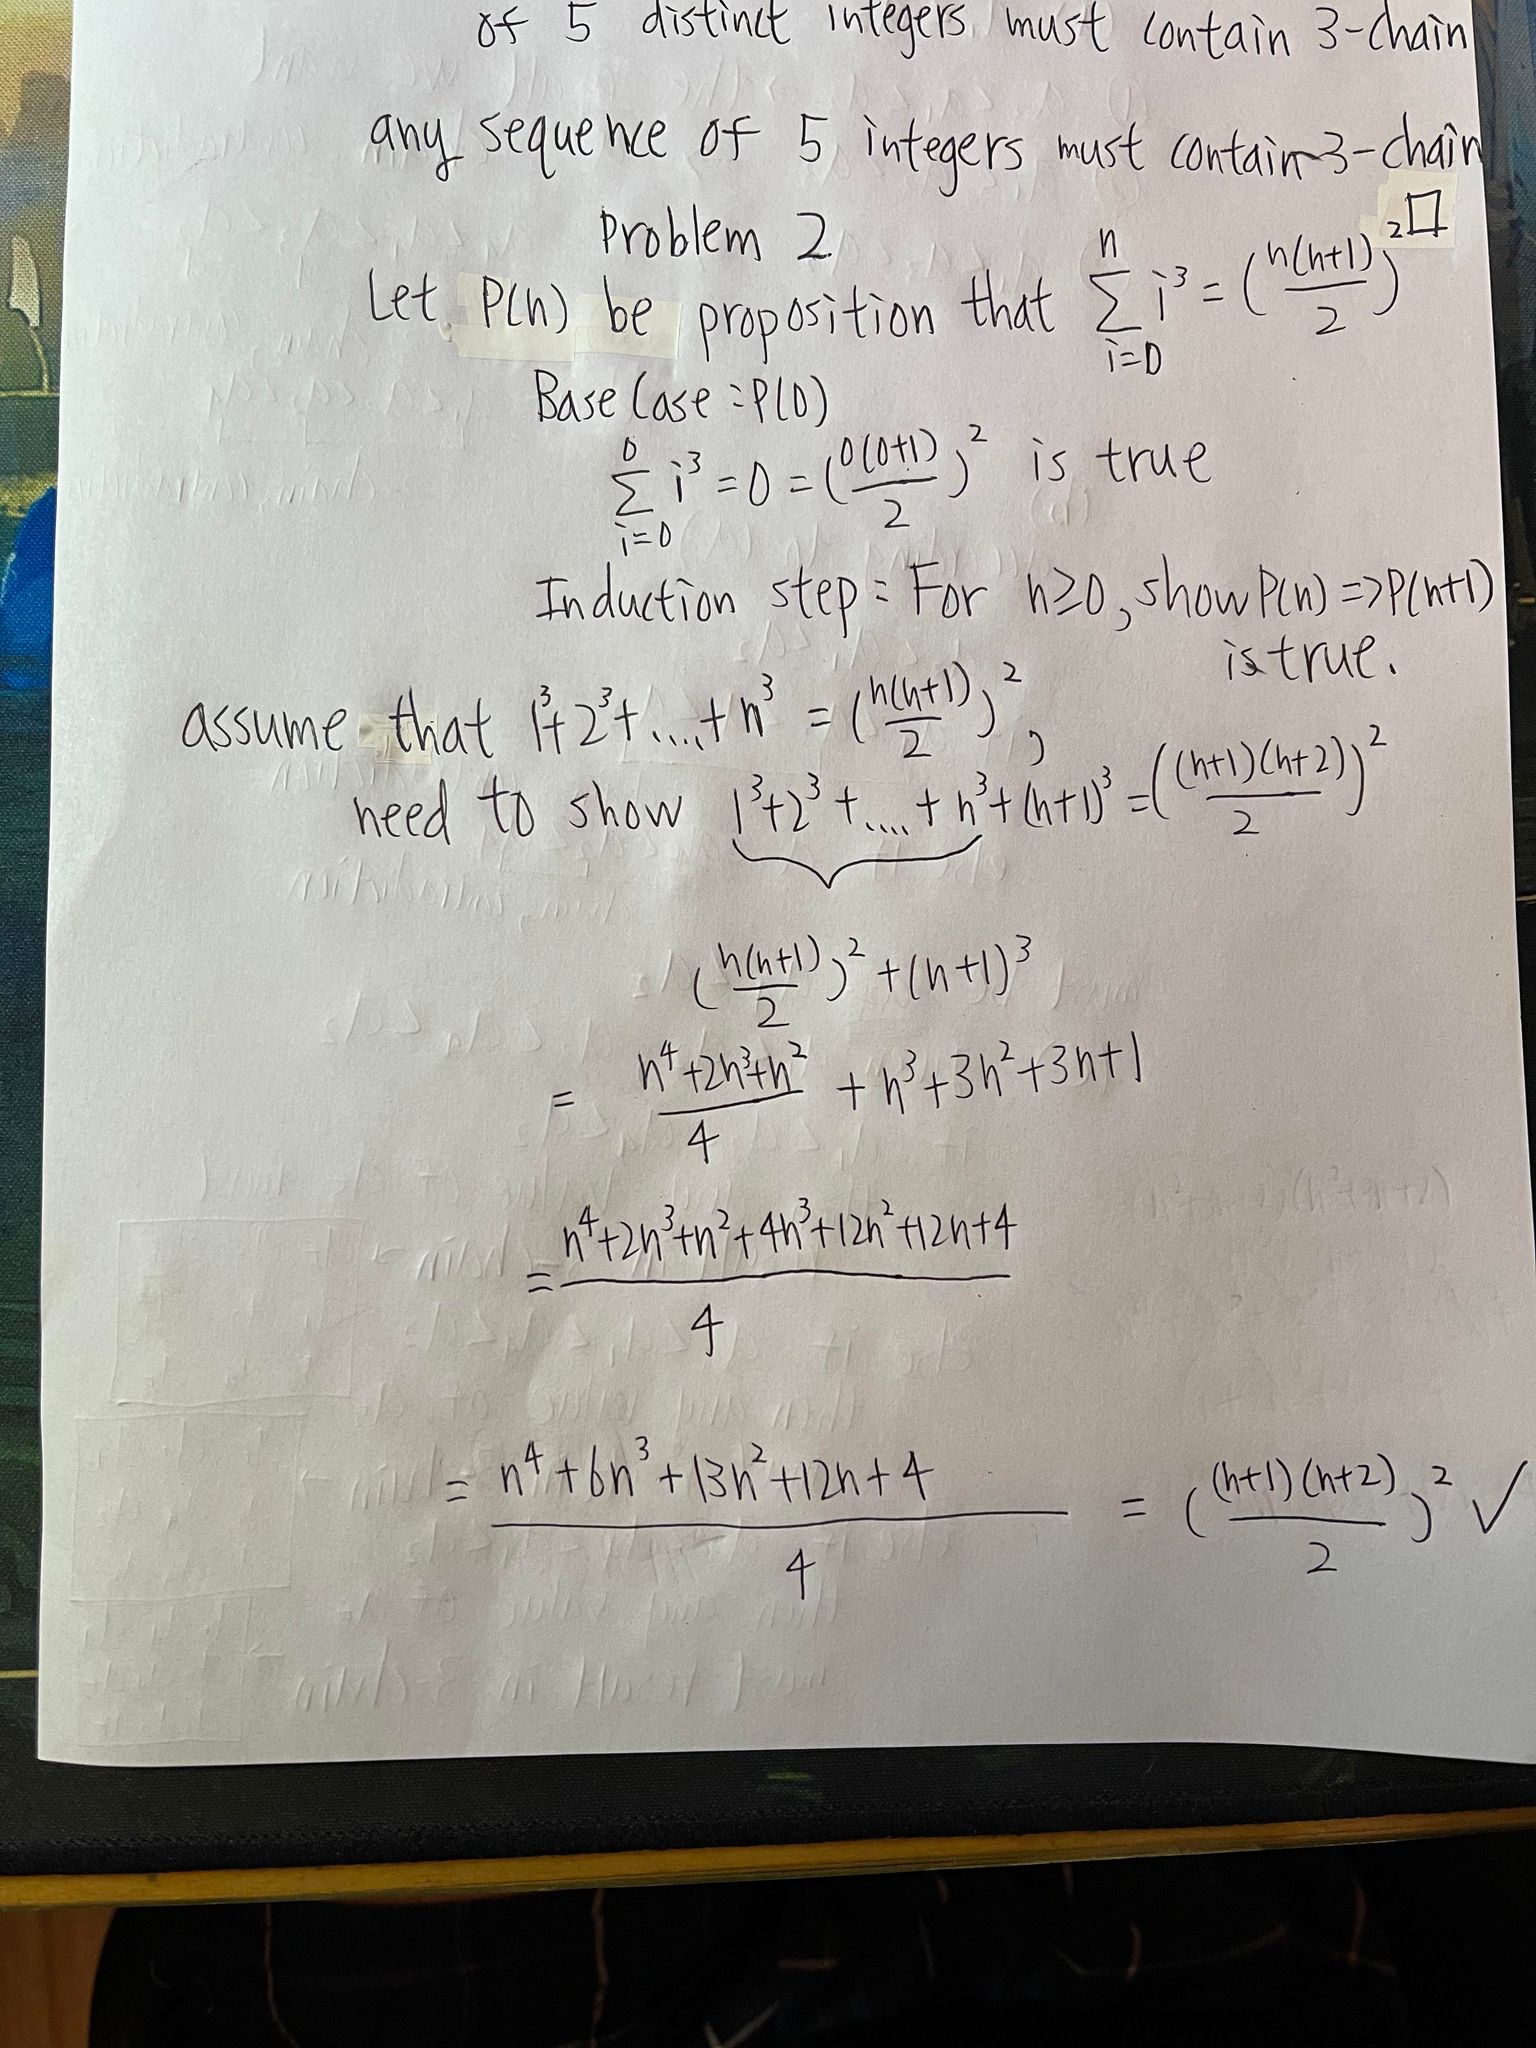 of 5 distinct integers must contain 3-chain
any sequence of 5 integers must contain 3-chain
□
Problem 2
Let P(n) be proposition that \sum_{i=0}^{n} i^3 = (\frac{n(n+1)}{2})^2
Base Case: P(0)
\sum_{i=0}^{0} i^3 = 0 = (\frac{0(0+1)}{2})^2 is true
Induction step: For n≥0, show P(n) => P(n+1)
is true.
assume that 1^3+2^3+....+n^3 = (\frac{n(n+1)}{2})^2,
need to show 1^3+2^3+....+n^3+(n+1)^3 = (\frac{(n+1)(n+2)}{2})^2
(\frac{n(n+1)}{2})^2 + (n+1)^3
= \frac{n^4+2n^3+n^2}{4} + n^3+3n^2+3n+1
= \frac{n^4+2n^3+n^2+4n^3+12n^2+12n+4}{4}
= \frac{n^4+6n^3+13n^2+12n+4}{4} = (\frac{(n+1)(n+2)}{2})^2 ✓